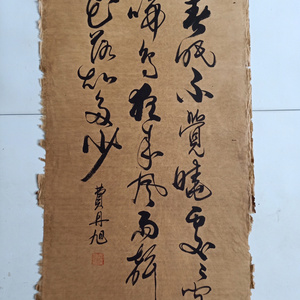 春眠不覺曉處〻聞
啼鳥夜來風雨聲
花落知多少
費丹旭